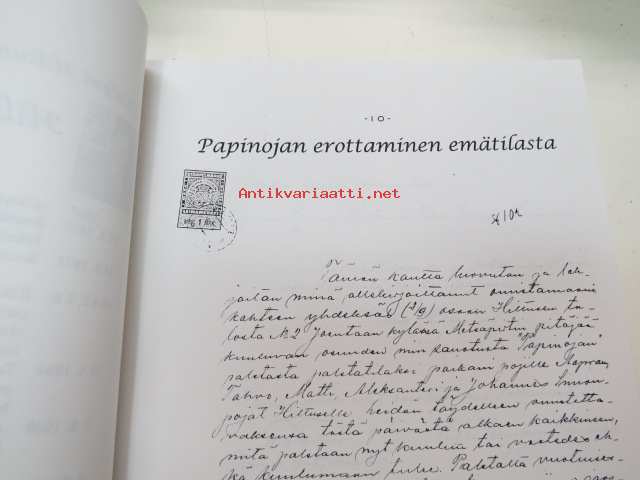 -10-
Papinojan erottaminen emätilasta
Antikvariaatti.net
1 Mk.
§ 10
Tämän kautta luovutan ja lah-
joitan minä allekirjoittanut omistamani
kahteen yhdeksäs (2/9) osaan Hiltusen ta-
losta № 2 Joentaan kylässä Metsäpirtin pitäjää
kuuluvan osuuden niin sanotusta "Papinojan
palstasta palstatilaksi pojille
Tahvo, Matti, Aleksanteri ja Johannes Simon-
pojat Hiltuselle heidän täydelleen omistetta-
vaksensa tästä päivästä alkaen kaikkineen,
mitä palstaan nyt kuuluu tai vastedes eh-
kä kuulumaan tulee. Palstalta vuotuises-